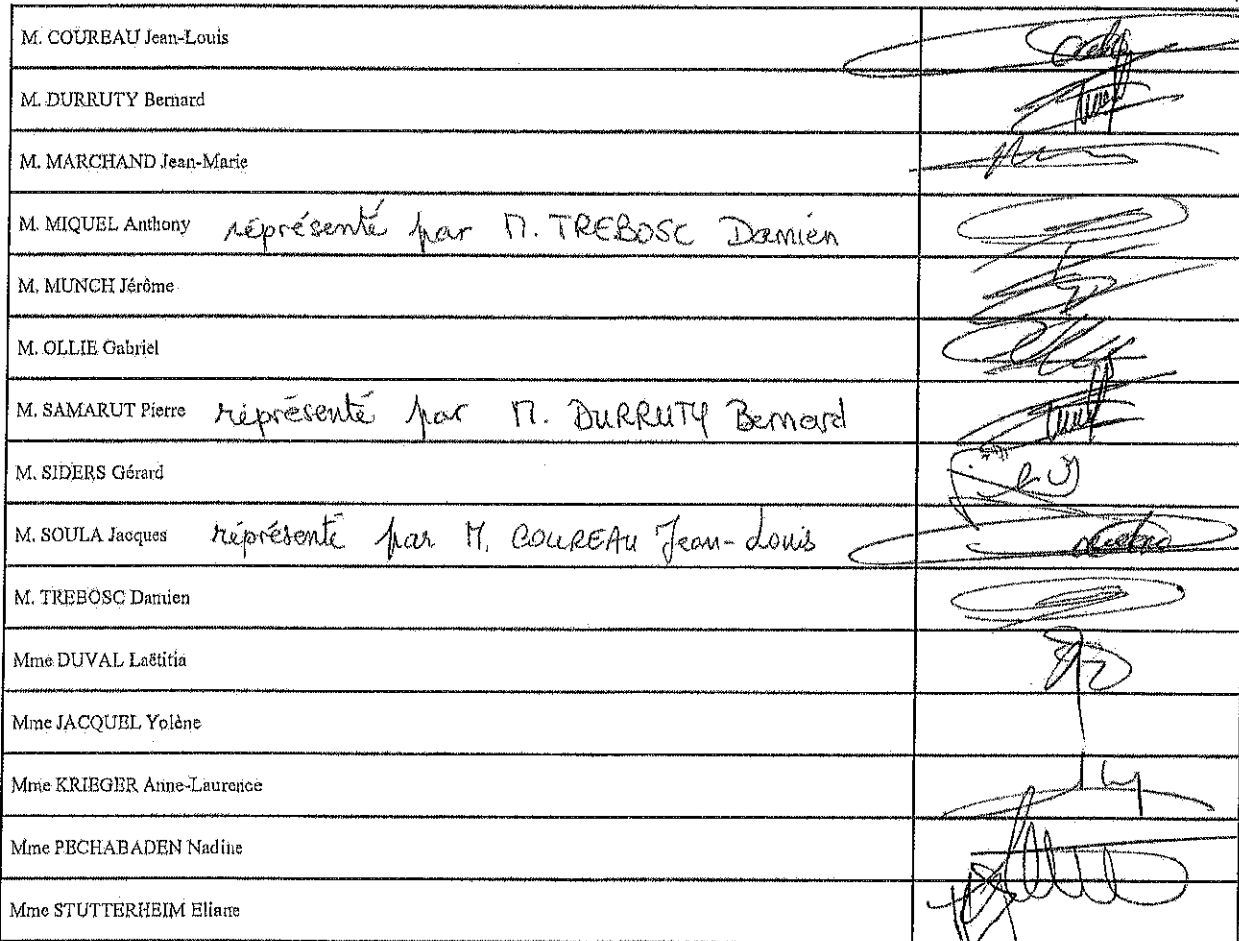 M. COUREAU Jean-Louis
M. DURRUTY Bernard
M. MARCHAND Jean-Marie
M. MIQUEL Anthony représenté par M. TREBOSC Damien
M. MUNCH Jérôme
M. OLLIE Gabriel
M. SAMARUT Pierre représenté par M. DURRUTY Bernard
M. SIDERS Gérard
M. SOULA Jacques représenté par M. COUREAU Jean-Louis
M. TREBOSC Damien
Mme DUVAL Laëtitia
Mme JACQUEL Yolène
Mme KRIEGER Anne-Laurence
Mme PECHABADEN Nadine
Mme STUTTERHEIM Eliane